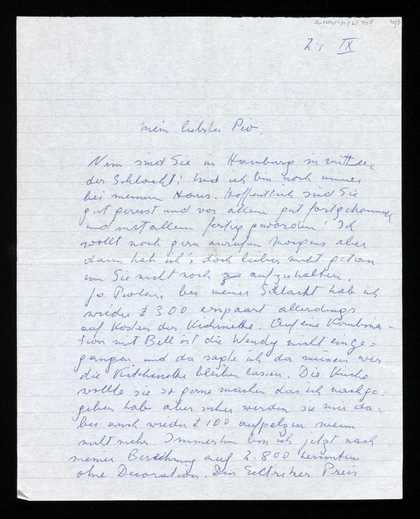 2. IX
Mein liebster Pio,
Nun sind Sie in Hamburg in mitten
der Schlacht! Und ich bin noch immer
bei meinem Haus. Hoffentlich sind Sie
gut gereist und vor allem gut fortgekommen
und mit allem fertig geworden! Ich
wollt noch gern anrufen Morgens aber
dann hab ich's doch lieber nicht getan
um Sie nicht noch zu aufzuhalten.
Ja bei meiner Schlacht hab ich
wieder £ 300 erspart allerdings
auf Kosten der. Auf eine Kombina-
tion mit Bell ist die Wendy nicht einge-
gangen und da sagte ich da müssen wir
die lassen. Die Küche
wollte sie so gerne machen das ich nachge-
geben habe aber sicher werden sie mir da-
bei noch wieder £ 100 aufpelzen wenn
nicht mehr. Immerhin bin ich jetzt nach
meiner Berechnung auf 2.800 herunten
ohne Decoration. Den Preis